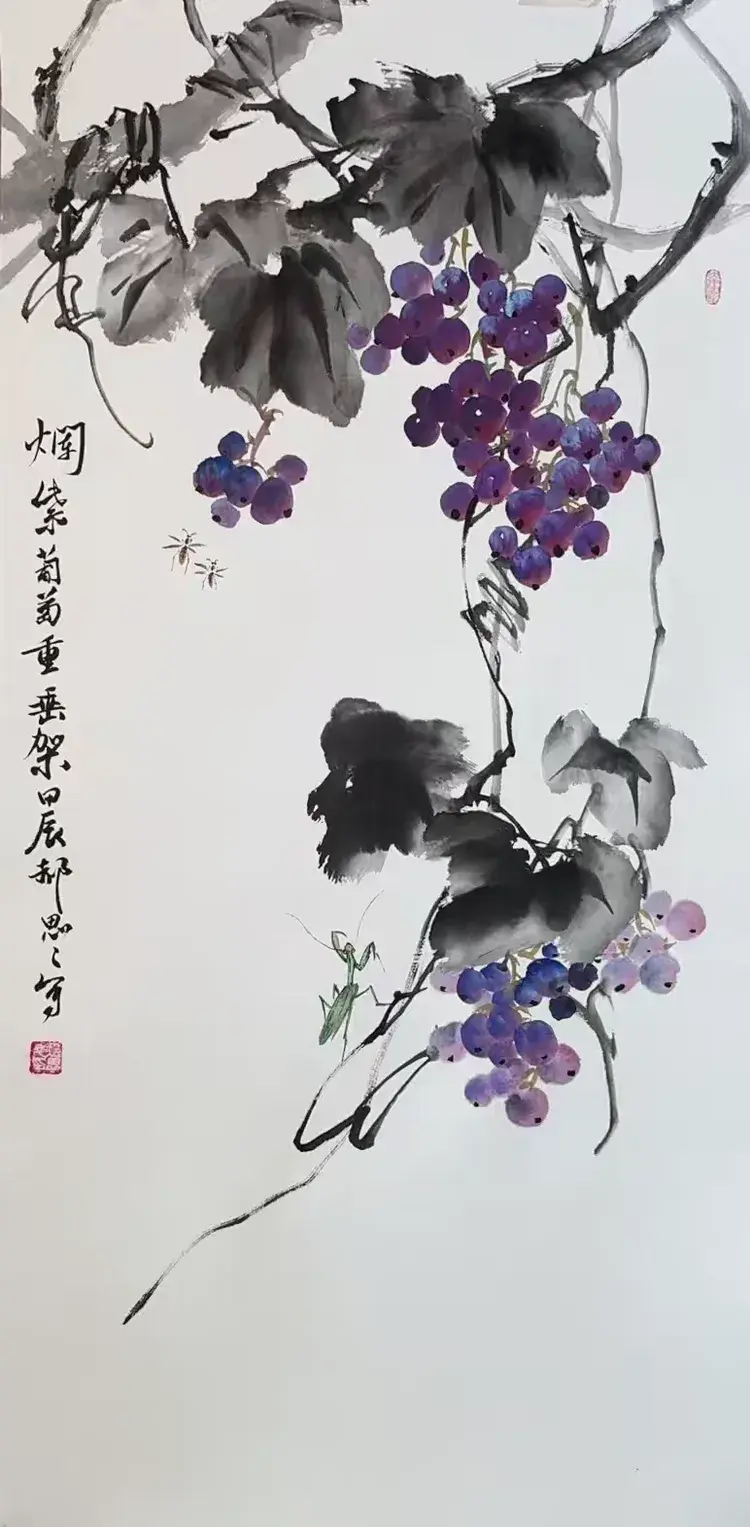 烂紫葡萄重垂架甲辰郝思〻写